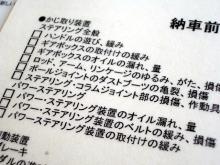 納車前
●かじ取り装置
ステアリング全般
□ハンドルの遊び、緩み
□ギアボックスの取付けの緩み
□ギアボックスのオイルの漏れ
□ロッド、アーム、リンケージのゆるみ、がた、損傷
□ボールジョイントのダストブーツの亀裂、損傷
□ステアリング・コラムジョイント部の損傷、作動具
パワーステアリング
□パワー・ステアリング装置のオイル漏れ、量
□パワーステアリング装置のベルトの緩み、損傷
□パワーステアリング装置の取付けの緩み
動装置
レーキ
ダルの遊